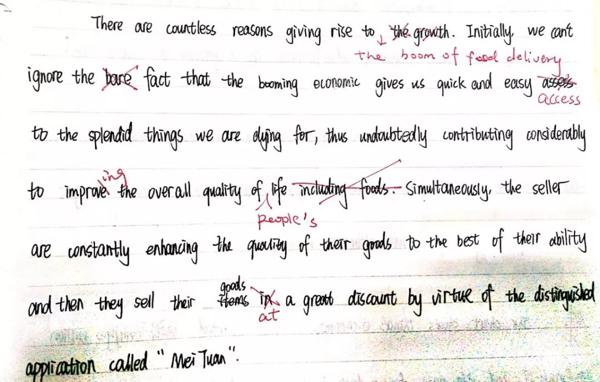 There are countless reasons giving rise to the growth. Initially, we can't
the boom of food delivery
ignore the bare fact that the booming economic gives us quick and easy assess
access
to the splendid things we are dying for, thus undoubtedly contributing considerably
ing
to improve the overall quality of life including foods. Simultaneously, the seller
people's
are constantly enhancing the quality of their goods to the best of their ability
goods
and then they sell their items in a great discount by virtue of the distinguished
at
application called "MeiTuan".